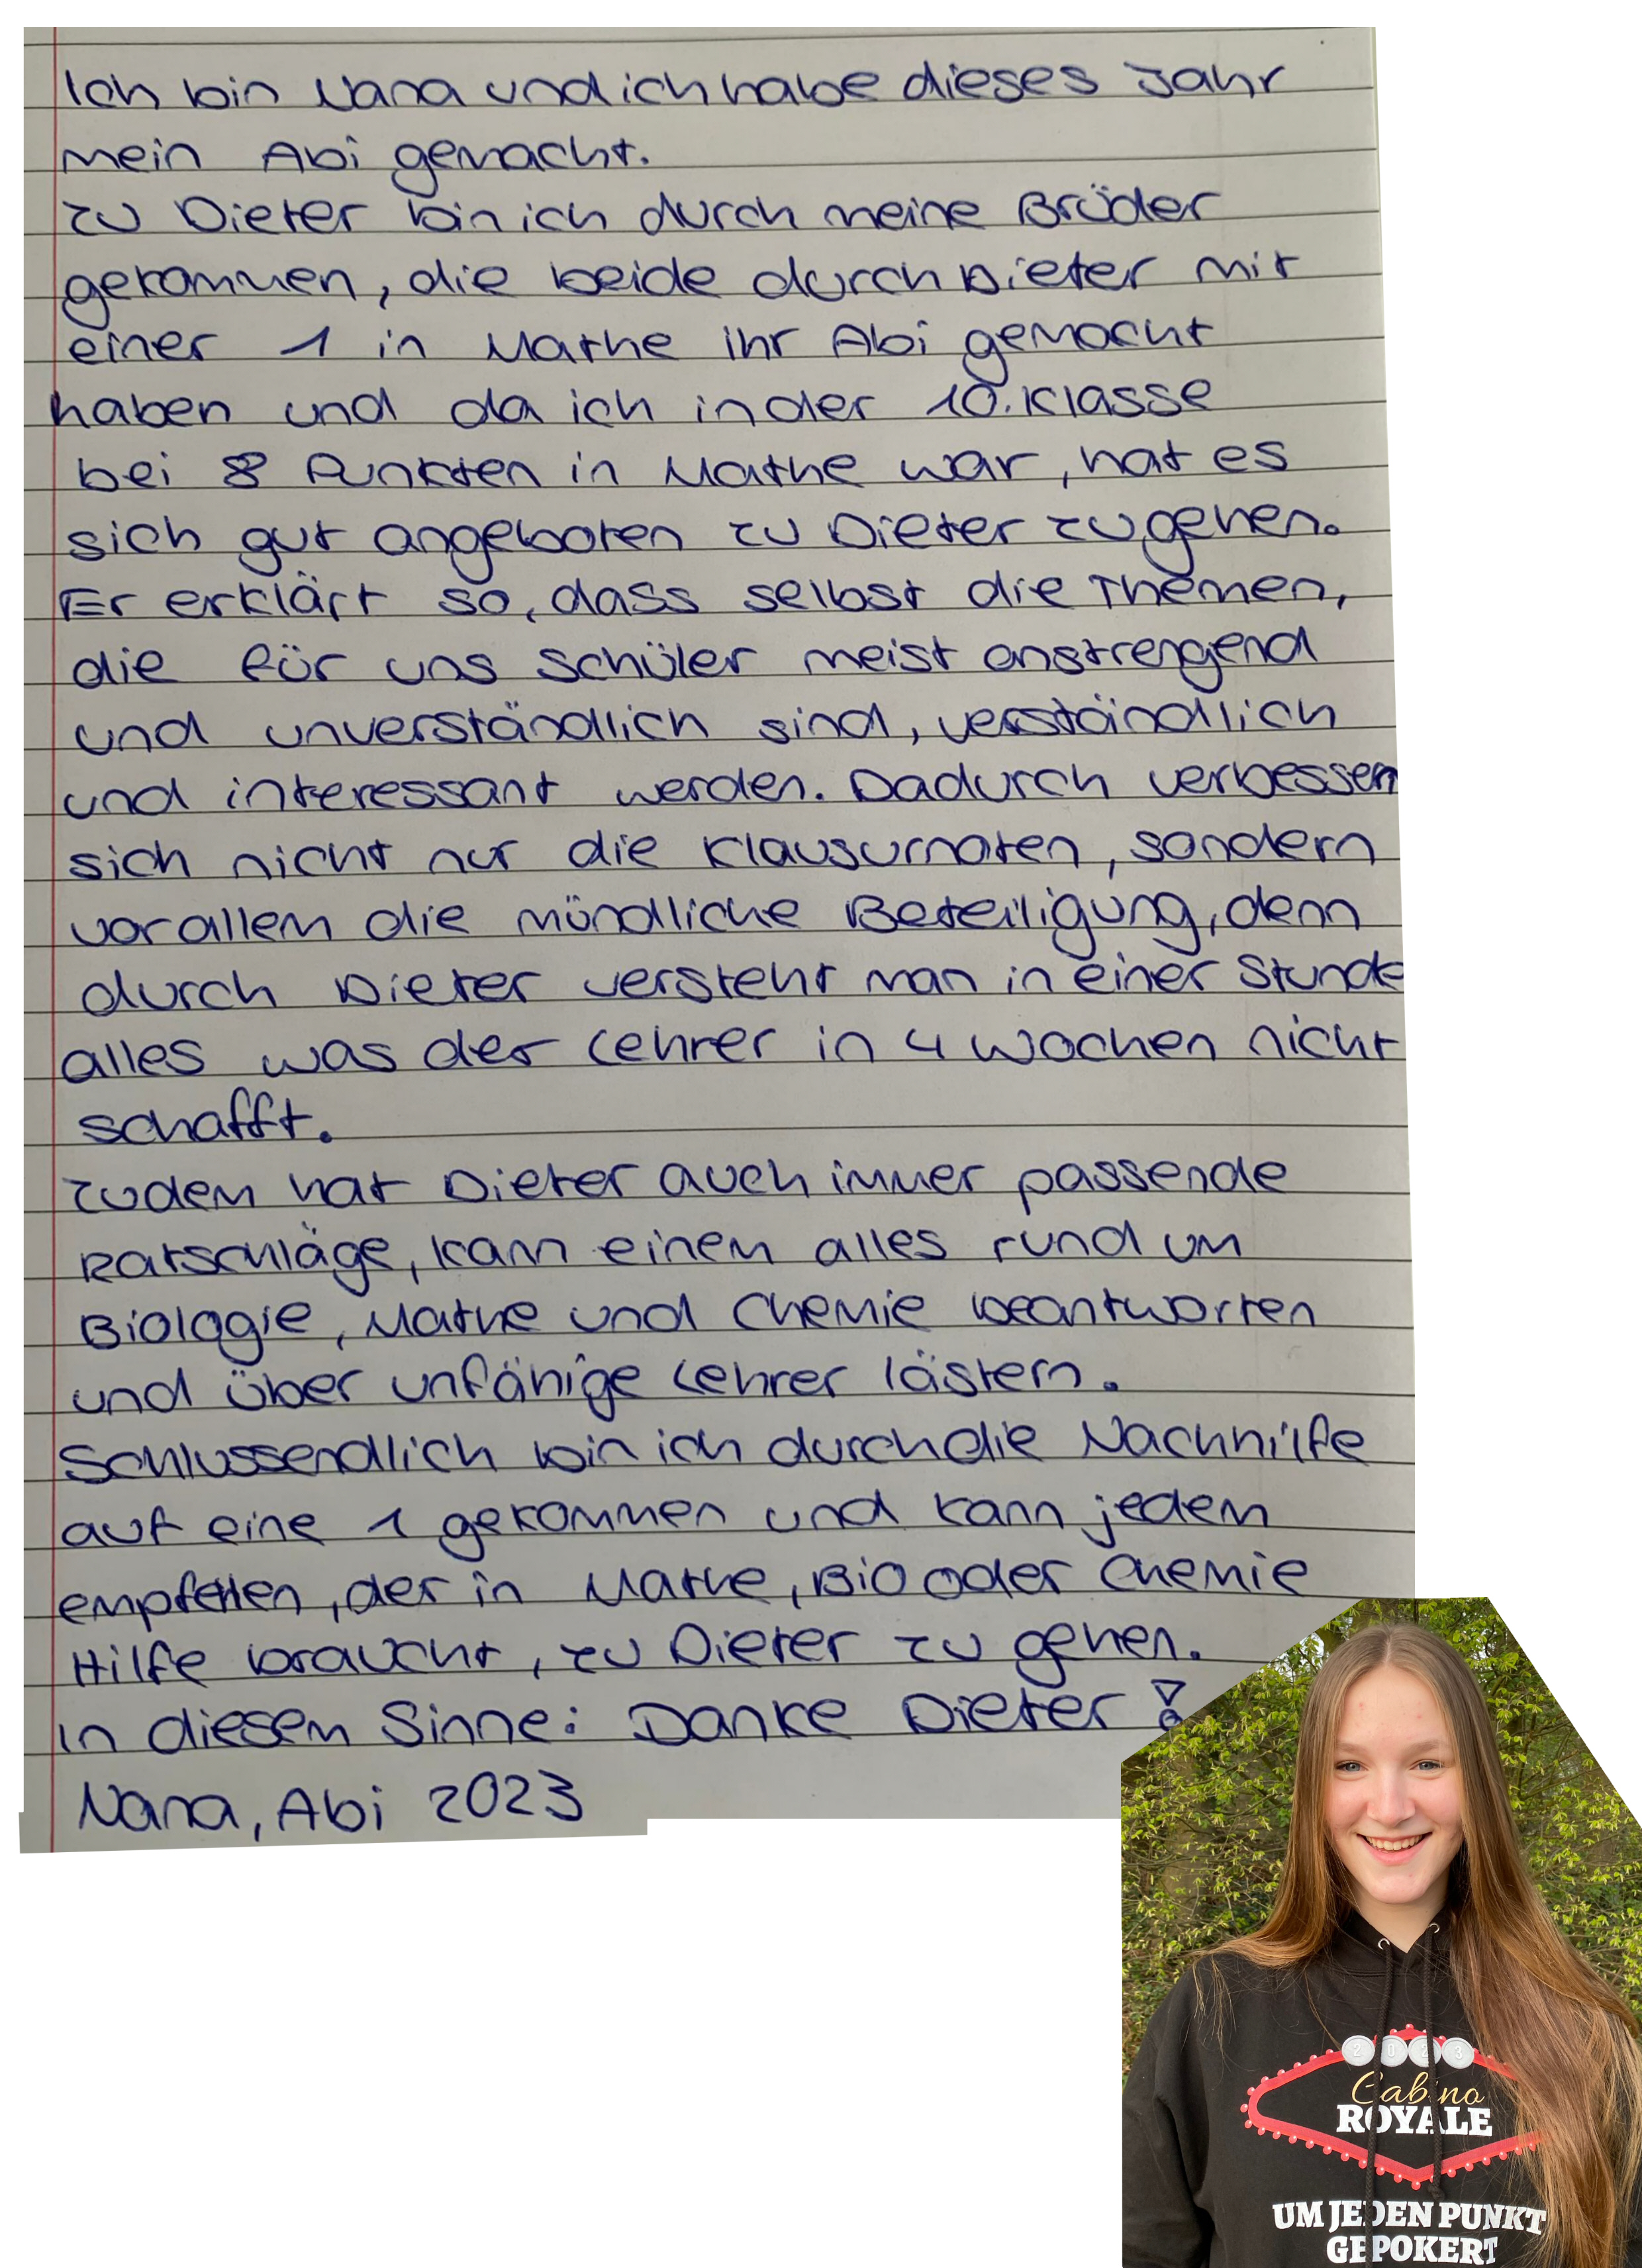 Ich bin Nana und ich habe dieses Jahr
mein Abi gemacht.
zu Dieter bin ich durch meine Brüder
gekommen, die beide durch Dieter mit
einer 1 in Mathe ihr Abi gemacht
haben und da ich in der 10. Klasse
bei 8 Punkten in Mathe war, hat es
sich gut angeboten zu Dieter zu gehen.
Er erklärt so, dass selbst die Themen,
die für uns Schüler meist anstrengend
und unverständlich sind, verständlich
und interessant werden. Dadurch verbessern
sich nicht nur die Klausurnoten, sondern
vor allem die mündliche Beteiligung, denn
durch Dieter versteht man in einer Stunde
alles was der Lehrer in 4 Wochen nicht
schafft.
zudem hat Dieter auch immer passende
Ratschläge, kann einem alles rund um
Biologie, Mathe und Chemie beantworten
und über unfähige Lehrer lästern.
Schlussendlich bin ich durch die Nachhilfe
auf eine 1 gekommen und kann jedem
empfehlen, der in Mathe, Bio oder Chemie
Hilfe braucht, zu Dieter zu gehen.
In diesem Sinne: Danke Dieter!
Nana, Abi 2023
2023
Cabino
ROYALE
UM JEDEN PUNKT
GEPOKERT